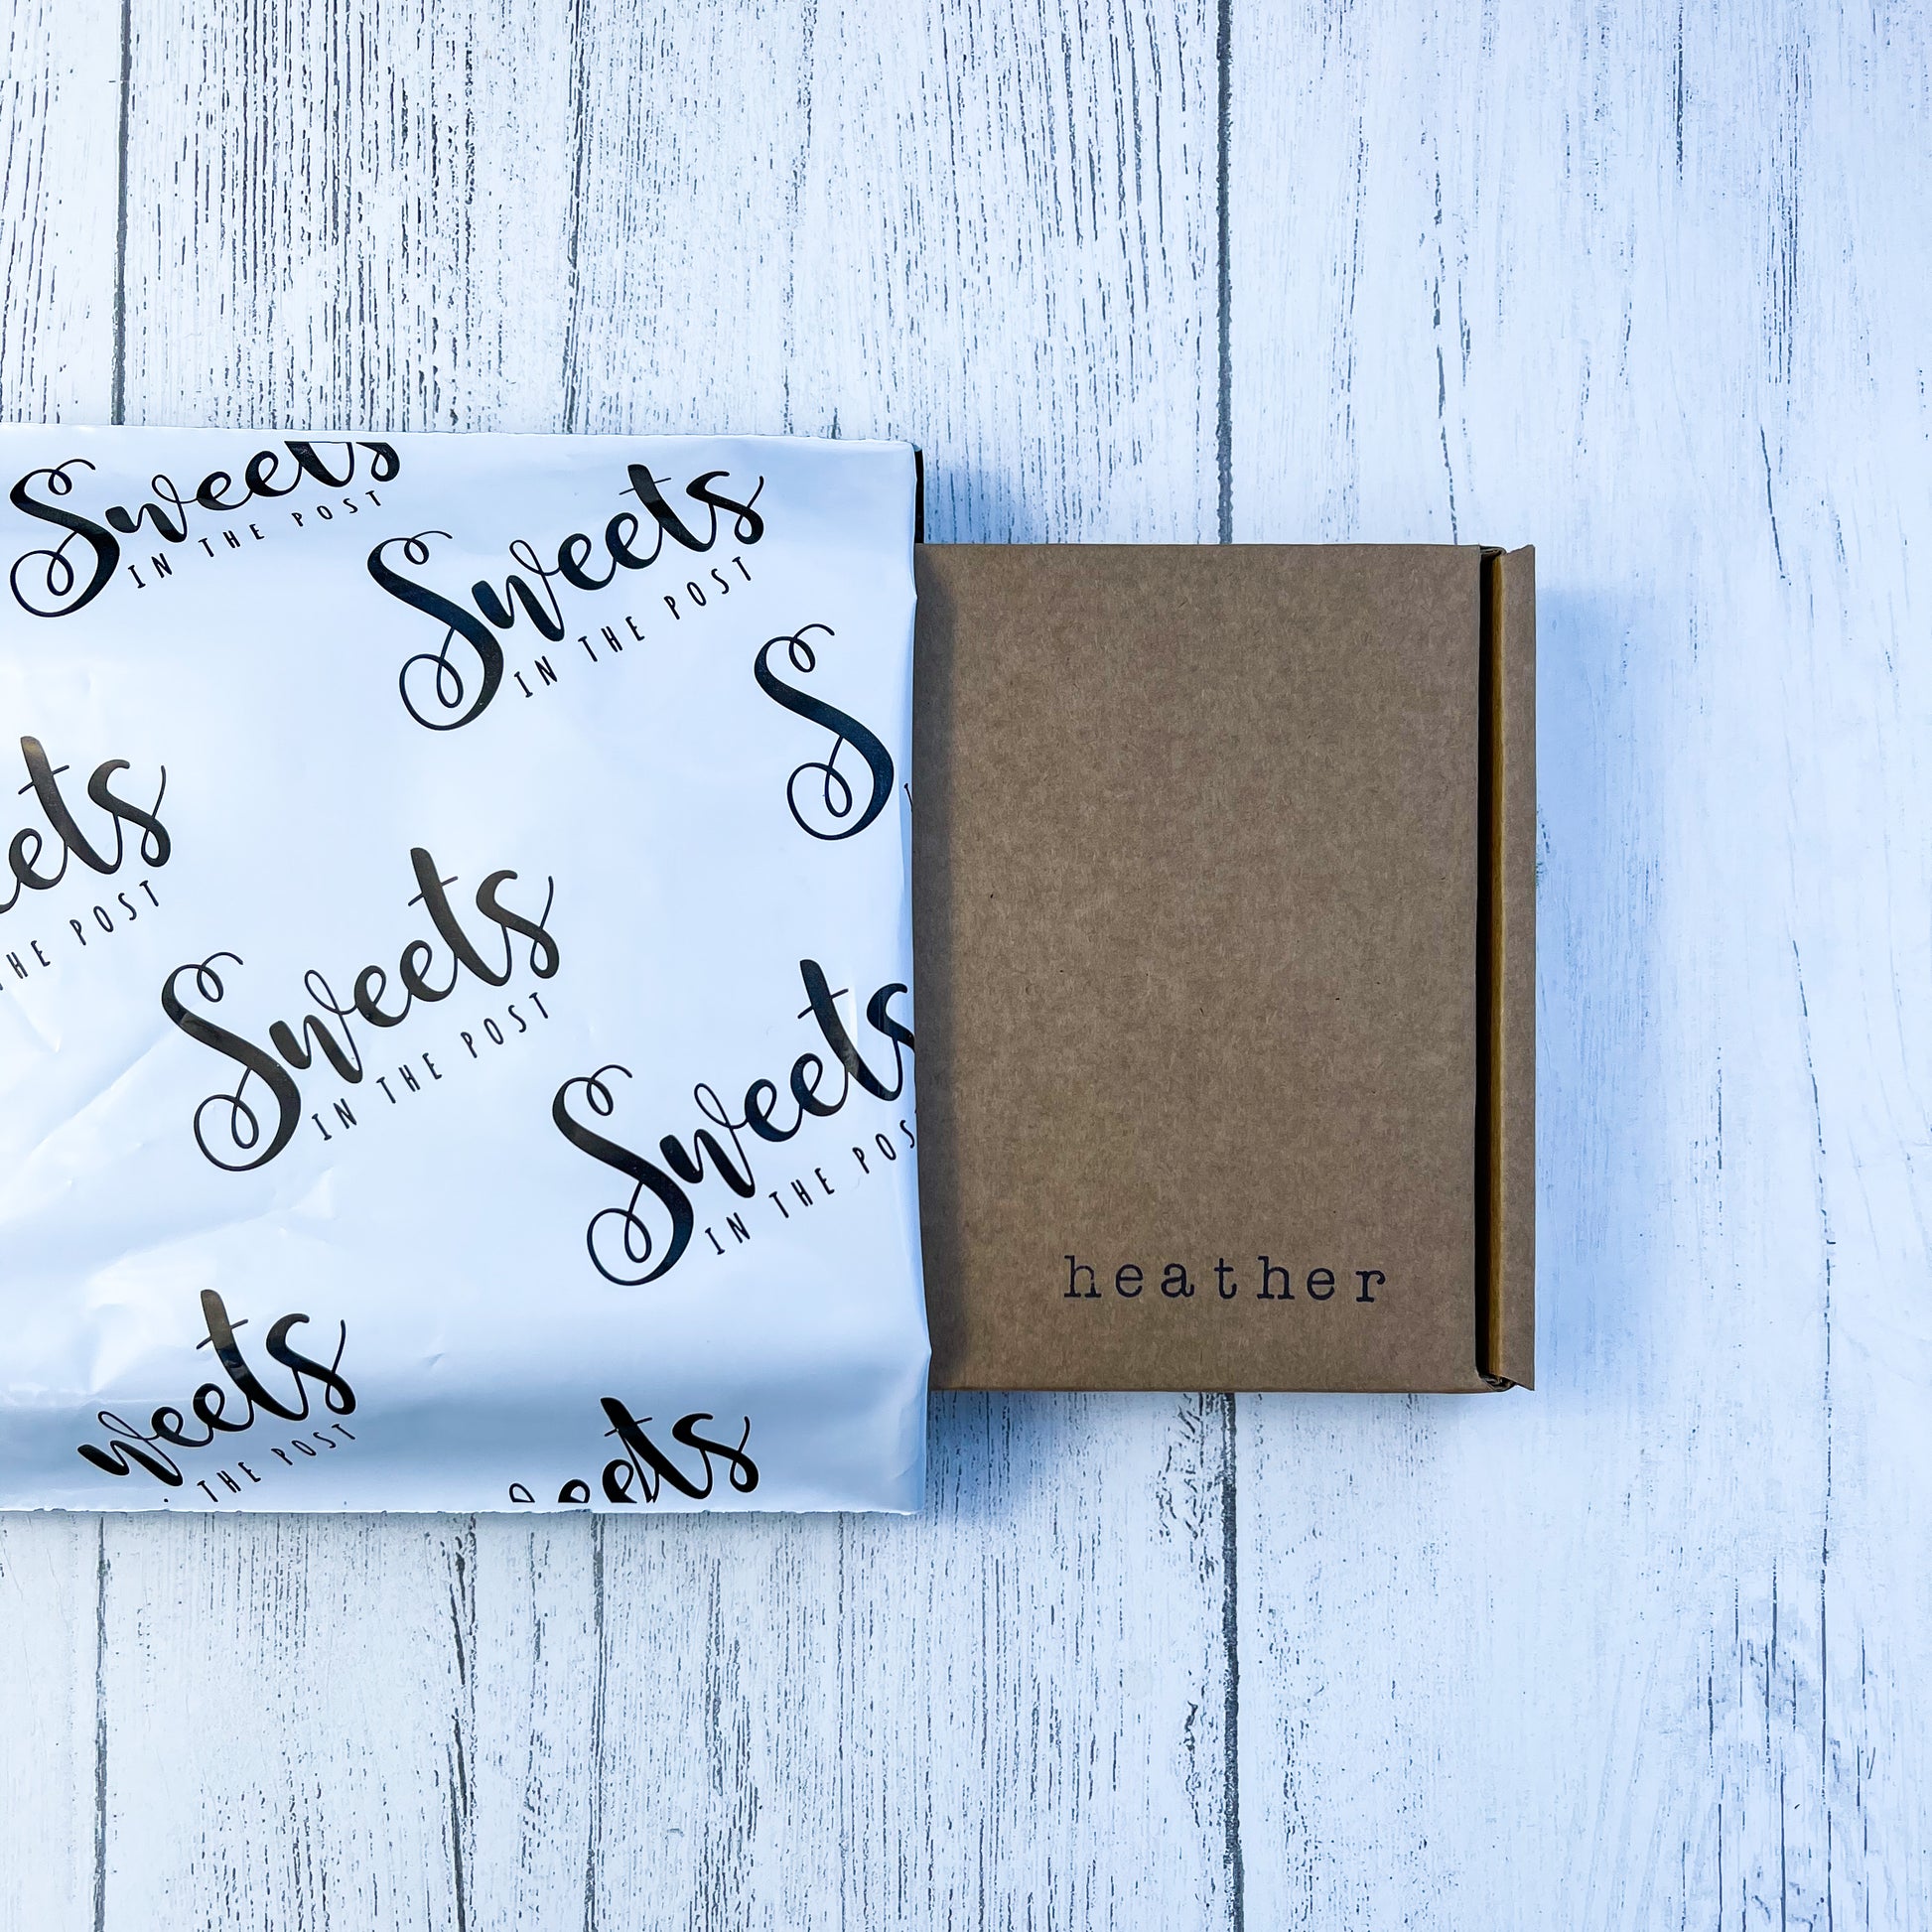 Sweets
IN THE POST
Sweets
IN THE POST
S
eets
THE POST
Sweets
IN THE POST
Sweets
IN THE POS
weets
THE POST
eets
heather